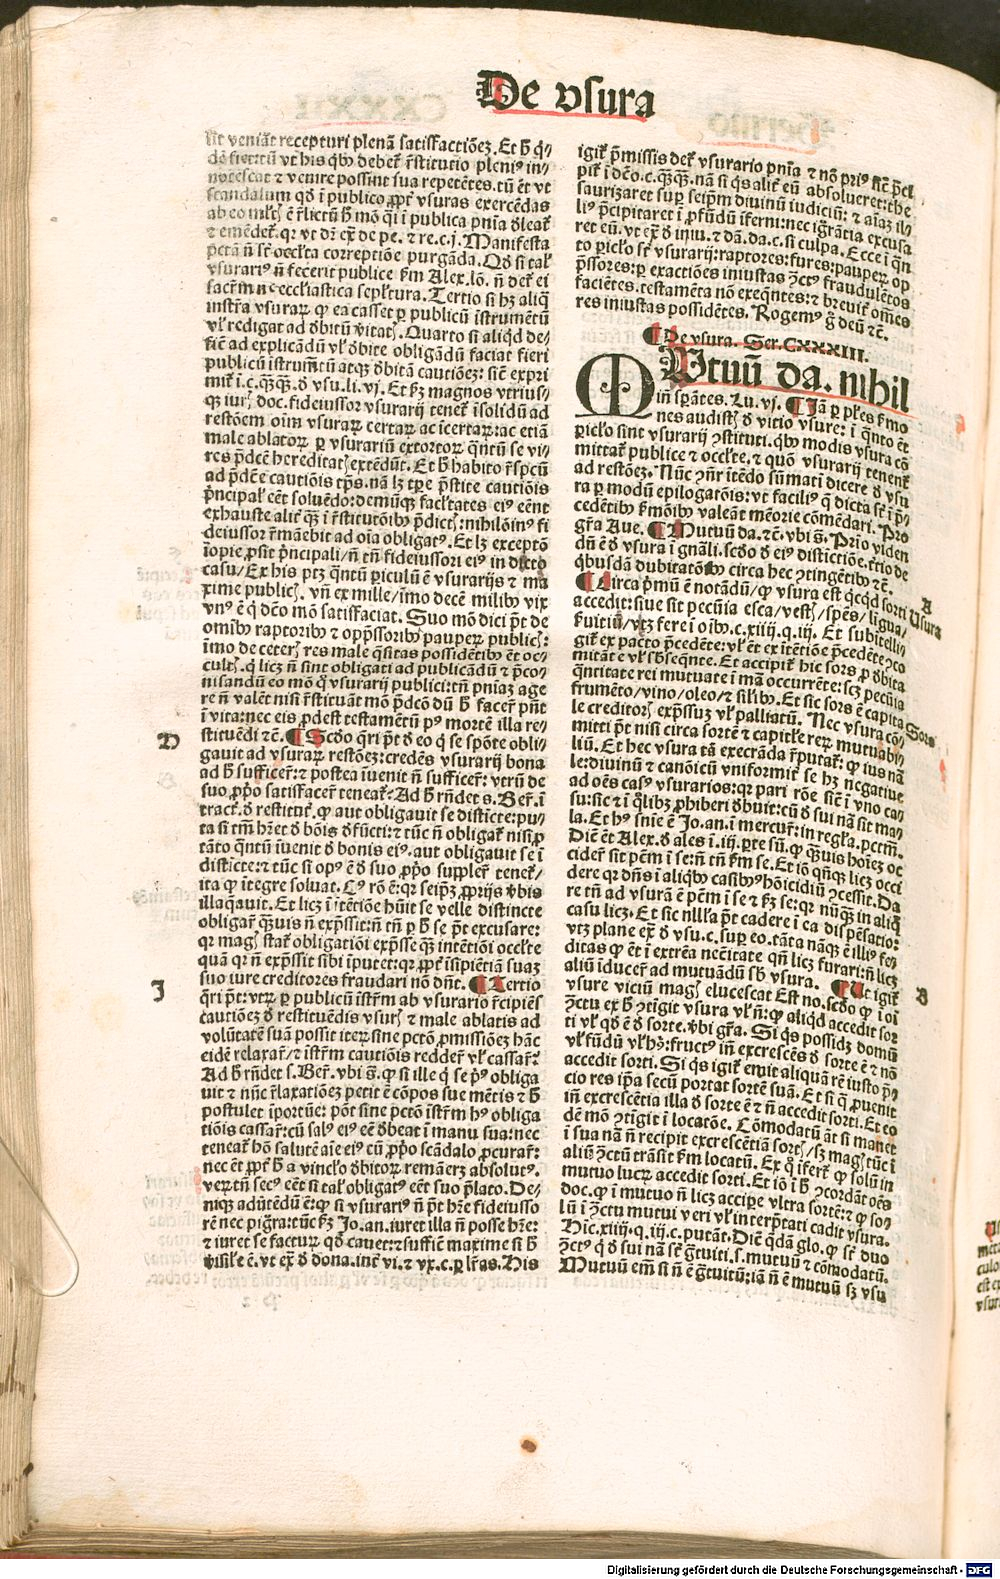 De vsura
sit veniāt recepturi plenā satisfactiōez. Et h̄ q̄-
dē fieri vt his qbꝰ debet̄ rstitutio pleniꝰ in-
notescat & venire possint sua repetētes. tū ēt vt
scandalum qd̓ ī publico ꝓpt̄ vsuras exercēdas
& emēdet̄. qꝛ vt dr̄ ex̄ de pe. & re. c. j. Manifesta
pctā n̄ st̄ occlta correptiōe purgāda. Qd̓ si tal̓
vsurariꝰ n̄ fecerit publice ẜm Alex. lō. n̄ det̄ ei
sacrm̄ nec ecclīastica sepl̓tura. Tertio si hꝫ aliq̄
instr̄a vsuraꝝ q̄ ea casset ꝑ publicū īstrumētū
vl̓ redigat ad d̓bitū ꝟitatꝭ. Quarto si aliqd̓ de-
publicū īstrumētū atqꝫ d̓bitā cautiōez: sic̄ expri
mit̄ i. c. q̄qꝫ. d̓ vsu. li. vj. Et ẜꝫ magnos vtrius-
qꝫ iurꝭ doc. fideiussor vsurarij tenet̄ īsolidū ad
restōem oīm vsuraꝝ certaꝝ ac īcertaꝝ: ac etiā
male ablatoꝝ ꝑ vsurariū extortoꝝ q̄ntū se vi-
res p̄dcē hereditatꝭ extēdūt. Et h̄ habito rspcū
ad p̄dcē cautiōis tp̄s. nā lꝫ tꝑe p̄stite cautiōis
p̄ncipal̓ cēt soluēdo: demūqꝫ facltates eiꝰ eēnt
exhauste alit̄ q̄ꝫ ī rstitutōibꝰ p̄dictꝭ: nihilōinꝰ fi
deiussor rmāebit ad oīa obligatꝰ. Et lꝫ exceptō
īopie ꝓsit p̄ncipali/n̄ tn̄ fideiussori eiꝰ in dicto
casu/Ex his ptꝫ q̄ntū ꝑiculū ē vsurarijs & ma
xime publicꝭ. vn̄ ex mille/īmo decē milibꝰ vix
vnꝰ ē q̄ dcō mō satisfaciat. Suo mō dici pt̄ de
omībꝰ raptoribꝰ & opp̄ssoribꝰ pauperꝝ publicꝭ:
īmo de ceterꝭ res male q̄sitas possidētibꝰ ēt oc-
cultꝭ. q̄ licꝫ n̄ sint obligati ad publicādū & p̄co-
nisandū eo mō q̄ vsurarij publici: tn̄ pniaꝫ age
re n̄ valēt nisi rstituāt mō p̄dcō dū h̄ facer̄ pn̄t
ī vita: nec eis ꝓdest testamētū pꝰ mortē illa re-
stituēdi ⁊c. ¶ Scd̓o q̄ri pt̄ d̓ eo q̄ se spōte obli-
gauit ad vsuraꝝ restōez: credēs vsurarij bona
ad h̄ sufficer̄: & postea īuenit n̄ sufficer̄: vtrū de
suo ꝓp̄o satisfacer̄ teneat̄: Ad h̄ rn̄det s. Ber̄. ī
tract̄. d̓ restitut̄. ꝙ aut obligauit se disticte: pu-
ta si tm̄ hꝫet d̓ bōis d̓fūcti: & tūc n̄ obligat̄ nisi ꝓ
tāto q̄ntū īuenit d̓ bonis eiꝰ. aut obligauit se ī
disticte: & tūc si opꝰ ē d̓ suo ꝓp̄o suppler̄ tenet̄/
ita ꝙ itegre soluat. Cꝰ rō ē: qꝛ seip̄ꝫ ꝓprijs ꝟbis
illaq̄auit. Et licꝫ ī ītētiōe hūit se velle distincte
obligar̄ q̄ꝫuis n̄ exp̄ssit: n̄ tn̄ ꝑ h̄ se pt̄ excusare:
qꝛ magꝭ stat̄ obligatiōi exp̄sse q̄ꝫ intētiōi occl̓te
quā qꝛ n̄ exp̄ssit sibi īputet: qꝛ ꝓpt̄ īsipiētiā suaꝫ
suo iure creditores fraudari nō dn̄t. ¶ Tertio
q̄ri pt̄: vtꝝ ꝑ publicū īstr̄m ab vsurario rcipiēs
cautiōeꝫ d̓ restituēdis vsurꝭ & male ablatis ad
volūtatē suā possit iteꝝ sine pctō ꝓmissiōeꝫ hāc
eidē relaxar̄/& īstr̄m cautiōis redder̄ vl̓ cassar̄.
Ad h̄ rn̄det s. Ber̄. vbi s̄. ꝙ si ille q̄ se pꝰ obliga
uit & nūc rlaxatiōeꝫ petit ē cōpos sue mētis & h̄
postulet īportūe: pōt sine pctō īstr̄m hꝰ obliga
tiōis cassar̄: cū salꝰ eiꝰ eē d̓beat ī manu sua: nec
teneat̄ hō salutē aīe eiꝰ cū ꝓp̄o scādalo ꝓcurar̄:
nec ēt ꝓpt̄ h̄ a vinclo d̓bitoꝝ remāerꝫ absolutꝰ.
veꝝtn̄ secꝰ eēt si tal̓ obligatꝰ eēt suo p̄lato. De-
niqꝫ aduertēdū ē: ꝙ si vsurariꝰ n̄ pt̄ hr̄e fideiusso
rē nec pigra: tūc ẜꝫ Jo. an. iuret illa n̄ posse hr̄e:
& iuret se facturū qd̓ cauet: & suffic̄ maxime si h̄
visil̓e ē. vt ex̄ d̓ dona. int̄ vi. & vx. c. ꝑ lr̄as. His
D
J
igit̄ p̄missis det̄ vsurario pnīa & nō priꝰ sic̄ p̄cl
pit̄ ī dcō. c. q̄qꝫ. nā si q̄s alit̄ eū absolueret: the
saurizaret suꝑ seip̄m diuinū iudiciū: & aīaꝫ il-
liꝰ p̄cipitaret ī ꝓfūdū īferni: nec igr̄atia excusa
ret eū. vt ex̄ d̓ iniu. & dā. da. c. si culpa. Ecce ī q̄n
to ꝑiclo st̄ vsurarij: raptores: fures: pauperꝝ op
p̄ssores: ꝑ exactiōes iniustas ꝯctꝰ fraudulētos
faciētes. testamēta nō exeq̄ntes: & breuit̄ om̄es
res iniustas possidētes. Rogemꝰ g̊ deū ⁊c.
¶ De vsura. Ser. CXXXIII.
MVtuū da. nihil
in sp̄ātes. Lu. vj. ¶ Jā ꝑ pl̓es ẜmo
nes audistꝭ d̓ vitio vsure: ī q̄nto ēt
ꝑiclo sint vsurarij ꝯstituti. qbꝰ modis vsura cō
mittat̄ publice & occl̓te. & quō vsurarij tenent̄
ad restōeꝫ. Nūc ꝯn̄r itēdo sūmati dicere d̓ vsu
ra ꝑ modū epilogatōis: vt faciliꝰ q̄ dicta st̄ ī p̄-
cedētibꝰ ẜmōibꝰ valeāt mēorie cōmēdari. Pro
gr̄a Aue. ¶ Mutuū da. ⁊c. vbi s̄. Prīo viden
dū ē d̓ vsura ī gn̄ali. scd̓o d̓ eiꝰ distictiōe. trīo de
qbusdā dubitatōibꝰ circa hec ꝯtingētibꝰ ⁊c.
¶ Circa p̄mū ē notādū/ꝙ vsura est qcqd̓ sorti
accedit: siue sit pecūia esca/vestꝭ/spēs/ligna/
ẜuitiū/vtꝫ fere ī oībꝰ. c. xiiij. q. iij. Et subitelli-
git̄ ex pacto p̄cedēte: vl̓ ēt ex itētiōe p̄cedēte ꝯco
mitāte vl̓ sb̓seqn̄te. Et accipit̄ hic sors ꝓ d̓bita
q̄ntitate rei mutuate ī manꝰ occurrēte: scꝫ pecūia
frumēto/vino/oleo/& sil̓ibꝰ. Et sic sors ē capita
le creditorꝭ exp̄ssuꝫ vl̓ palliatū. Nec vsura cō-
mitti pt̄ nisi circa sortē & capitl̓e reꝝ mutuabi-
liū. Et hec vsura tā execrāda rputat̄: ꝙ ius nā
le: diuinū & canōicū vniformit̄ se hꝫ negatiue
ad oēs casꝰ vsurarios: qꝛ pari rōe sic̄ ī vno ca-
su: sic & ī q̊libꝫ ꝓhiberi d̓buit: cū d̓ sui nā sit ma-
la. Et hꝰ snīe ē Jo. an. ī mercur̄: in regl̓a. pctm̄.
Dic̄ ēt Alex. d̓ ales ī. iij. ꝑte sū. ꝙ q̄ꝫuis hoīeꝫ oc
cider̄ sit pctm̄ ī se: n̄ tn̄ ẜm se. Et iō qn̄qꝫ licꝫ occi
dere qꝛ dn̄s ī aliqbꝰ casibꝰ homicidiū ꝯcessit. Da
re tn̄ ad vsurā ē pctm̄ ī se & ẜꝫ se: qꝛ nūq̄ꝫ in aliq̊
casu licꝫ. Et sic nll̓a pt̄ cadere ī ca dispēsatio:
vtꝫ plane ex̄ d̓ vsu. c. suꝑ eo. tāta nāqꝫ ē illiꝰ fe-
ditas ꝙ ēt ī extrēa nccītate qn̄ licꝫ furari: n̄ licꝫ
aliū īducer̄ ad mutuādū sb̓ vsura. ¶ Ut igit̄
vsure viciū magꝭ elucescat Est no. scd̓o ꝙ ī oī
ꝯctu ex h̄ ꝯtigit vsura vl̓ n̄: ꝙ aliqd̓ accedit sor
ti vl̓ qd̓ ē d̓ sorte. ꝟbi gr̄a. Si q̄s possidꝫ domū
vl̓ fūdū vl̓ hꝰ: fructꝰ īn excrescēs d̓ sorte ē & nō
accedit sorti. Si q̄s igit̄ emit aliquā rē iusto p̄-
cio res ip̄a secū portat sortē suā. Et si q̄ ꝓuenit
īn excrescētia illa d̓ sorte ē & n̄ accedit sorti. Et eo
dē mō ꝯtigit ī locatōe. Cōmodatū āt si manet
ī sua nā n̄ recipit excrescētiā sortꝭ/sꝫ magꝭ tūc ī
aliū ꝯctū trāsit ẜm locatū. Ex q̊ īfert̄ ꝙ solū in
mutuo lucꝝ accedit sorti. Et iō ī h̄ ꝯcordāt oēs
doc. ꝙ ī mutuo n̄ licꝫ accipe vltra sortē: & ꝙ so-
lū ī ꝯctu mutui veri vl̓ īterp̄tati cadit vsura.
Hic. xiiij. q. iij. c. putāt. Dic̄ q̄dā glo. ꝙ st̄ duo
ꝯctꝰ q̄ d̓ sui nā st̄ g̊tuiti. s. mutuū & cōmodatū.
Mutuū em̄ si n̄ ē g̊tuitū: iā n̄ ē mutuū sꝫ vsu
A
Usura
Sors
B
Digitalisierung gefördert durch die Deutsche Forschungsgemeinschaft - DFG